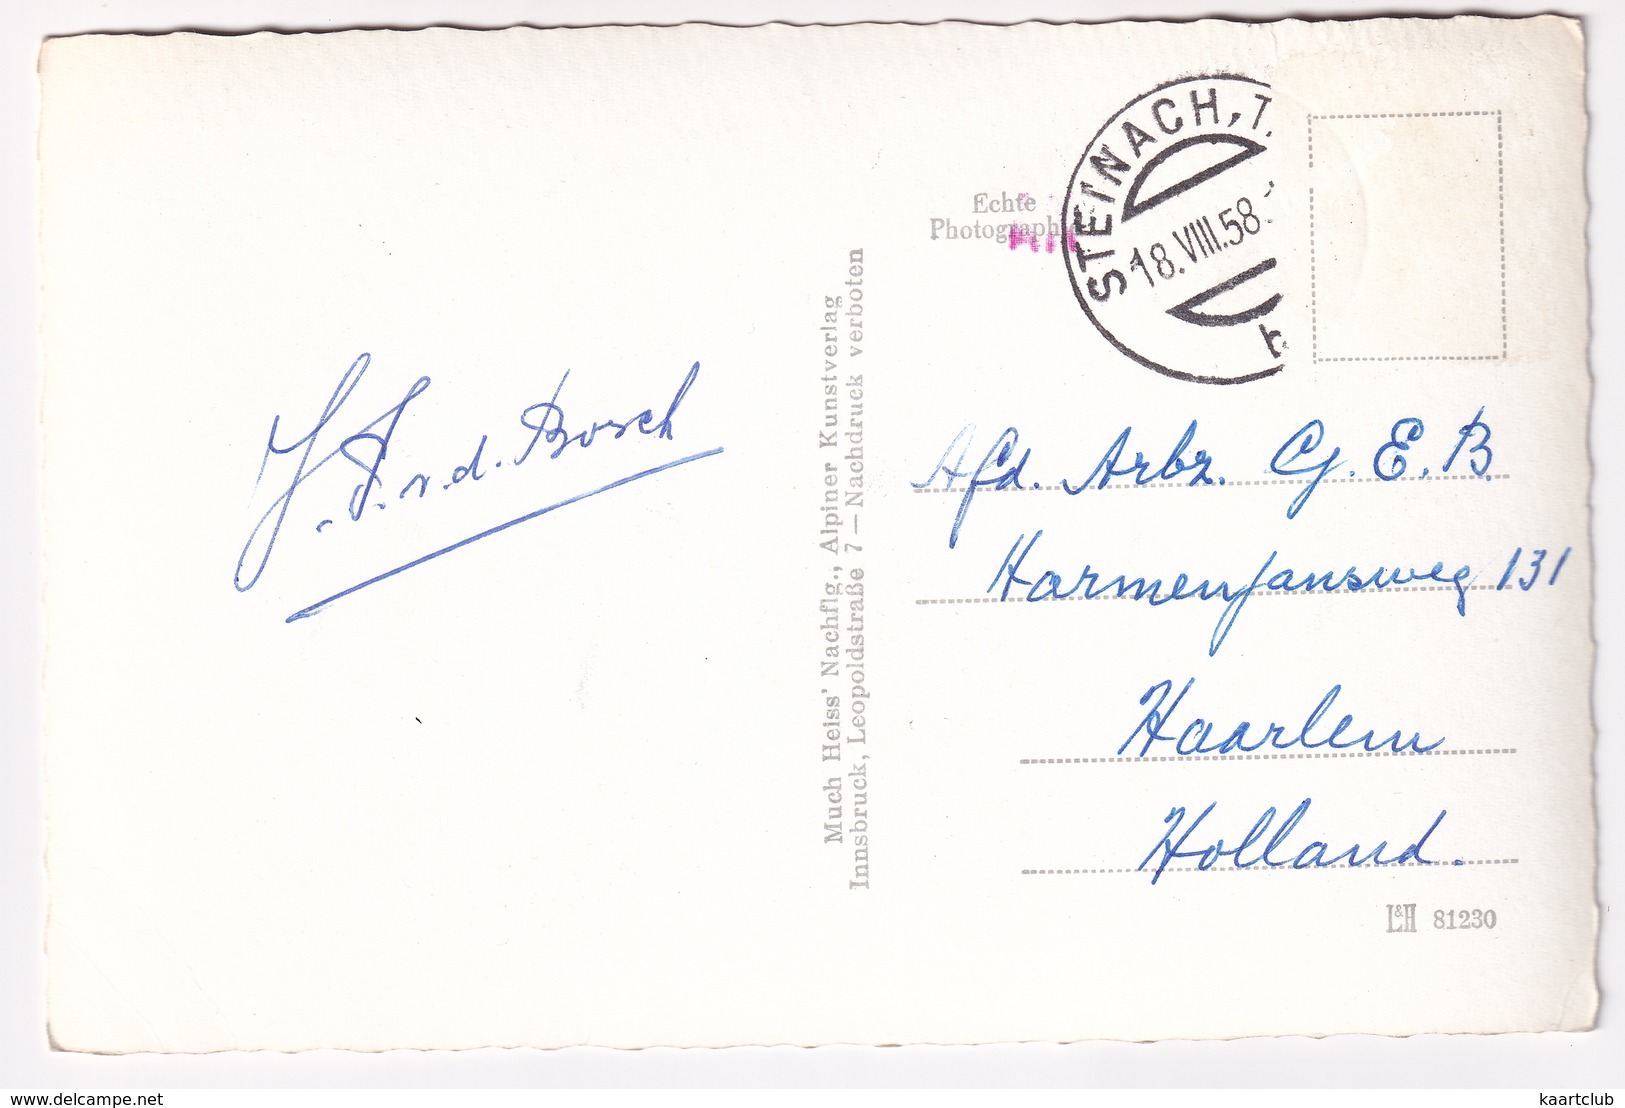 STEINACH, T.
18.VIII.58
b
Echte
Photographie
J. F. v. d. Bosch
Much Heiss' Nachflg., Alpiner Kunstverlag
Innsbruck, Leopoldstraße 7 — Nachdruck verboten
Afd. Arbz. G. E. B.
Harmenjansweg 131
Haarlem
Holland.
L&H 81230
www.delcampe.net
kaartclub